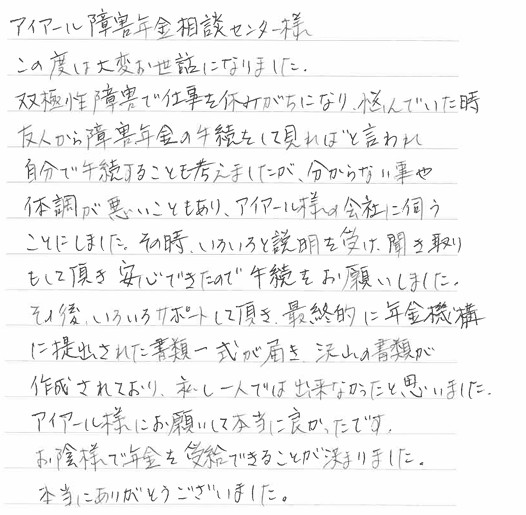 アイアール障害年金相談センター様
この度は大変お世話になりました.
双極性障害で仕事を休みがちになり、悩んでいた時
友人から障害年金の手続をして見ればと言われ
自分で手続することも考えましたが、分からない事や
体調が悪いこともあり、アイアール様の会社に伺う
ことにしました。その時、いろいろと説明を受け、聞き取り
もして頂き安心できたので手続をお願いしました。
その後、いろいろサポートして頂き、最終的に年金機構
に提出された書類一式が届き、沢山の書類が
作成されており、私し一人では出来なかったと思いました.
アイアール様にお願いして本当に良かったです。
お陰様で年金を受給できることが決まりました。
本当にありがとうございました。